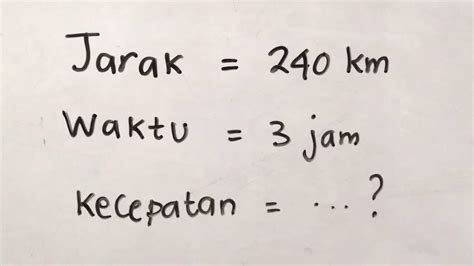 Jarak = 240 km
Waktu = 3 jam
Kecepatan = ... ?